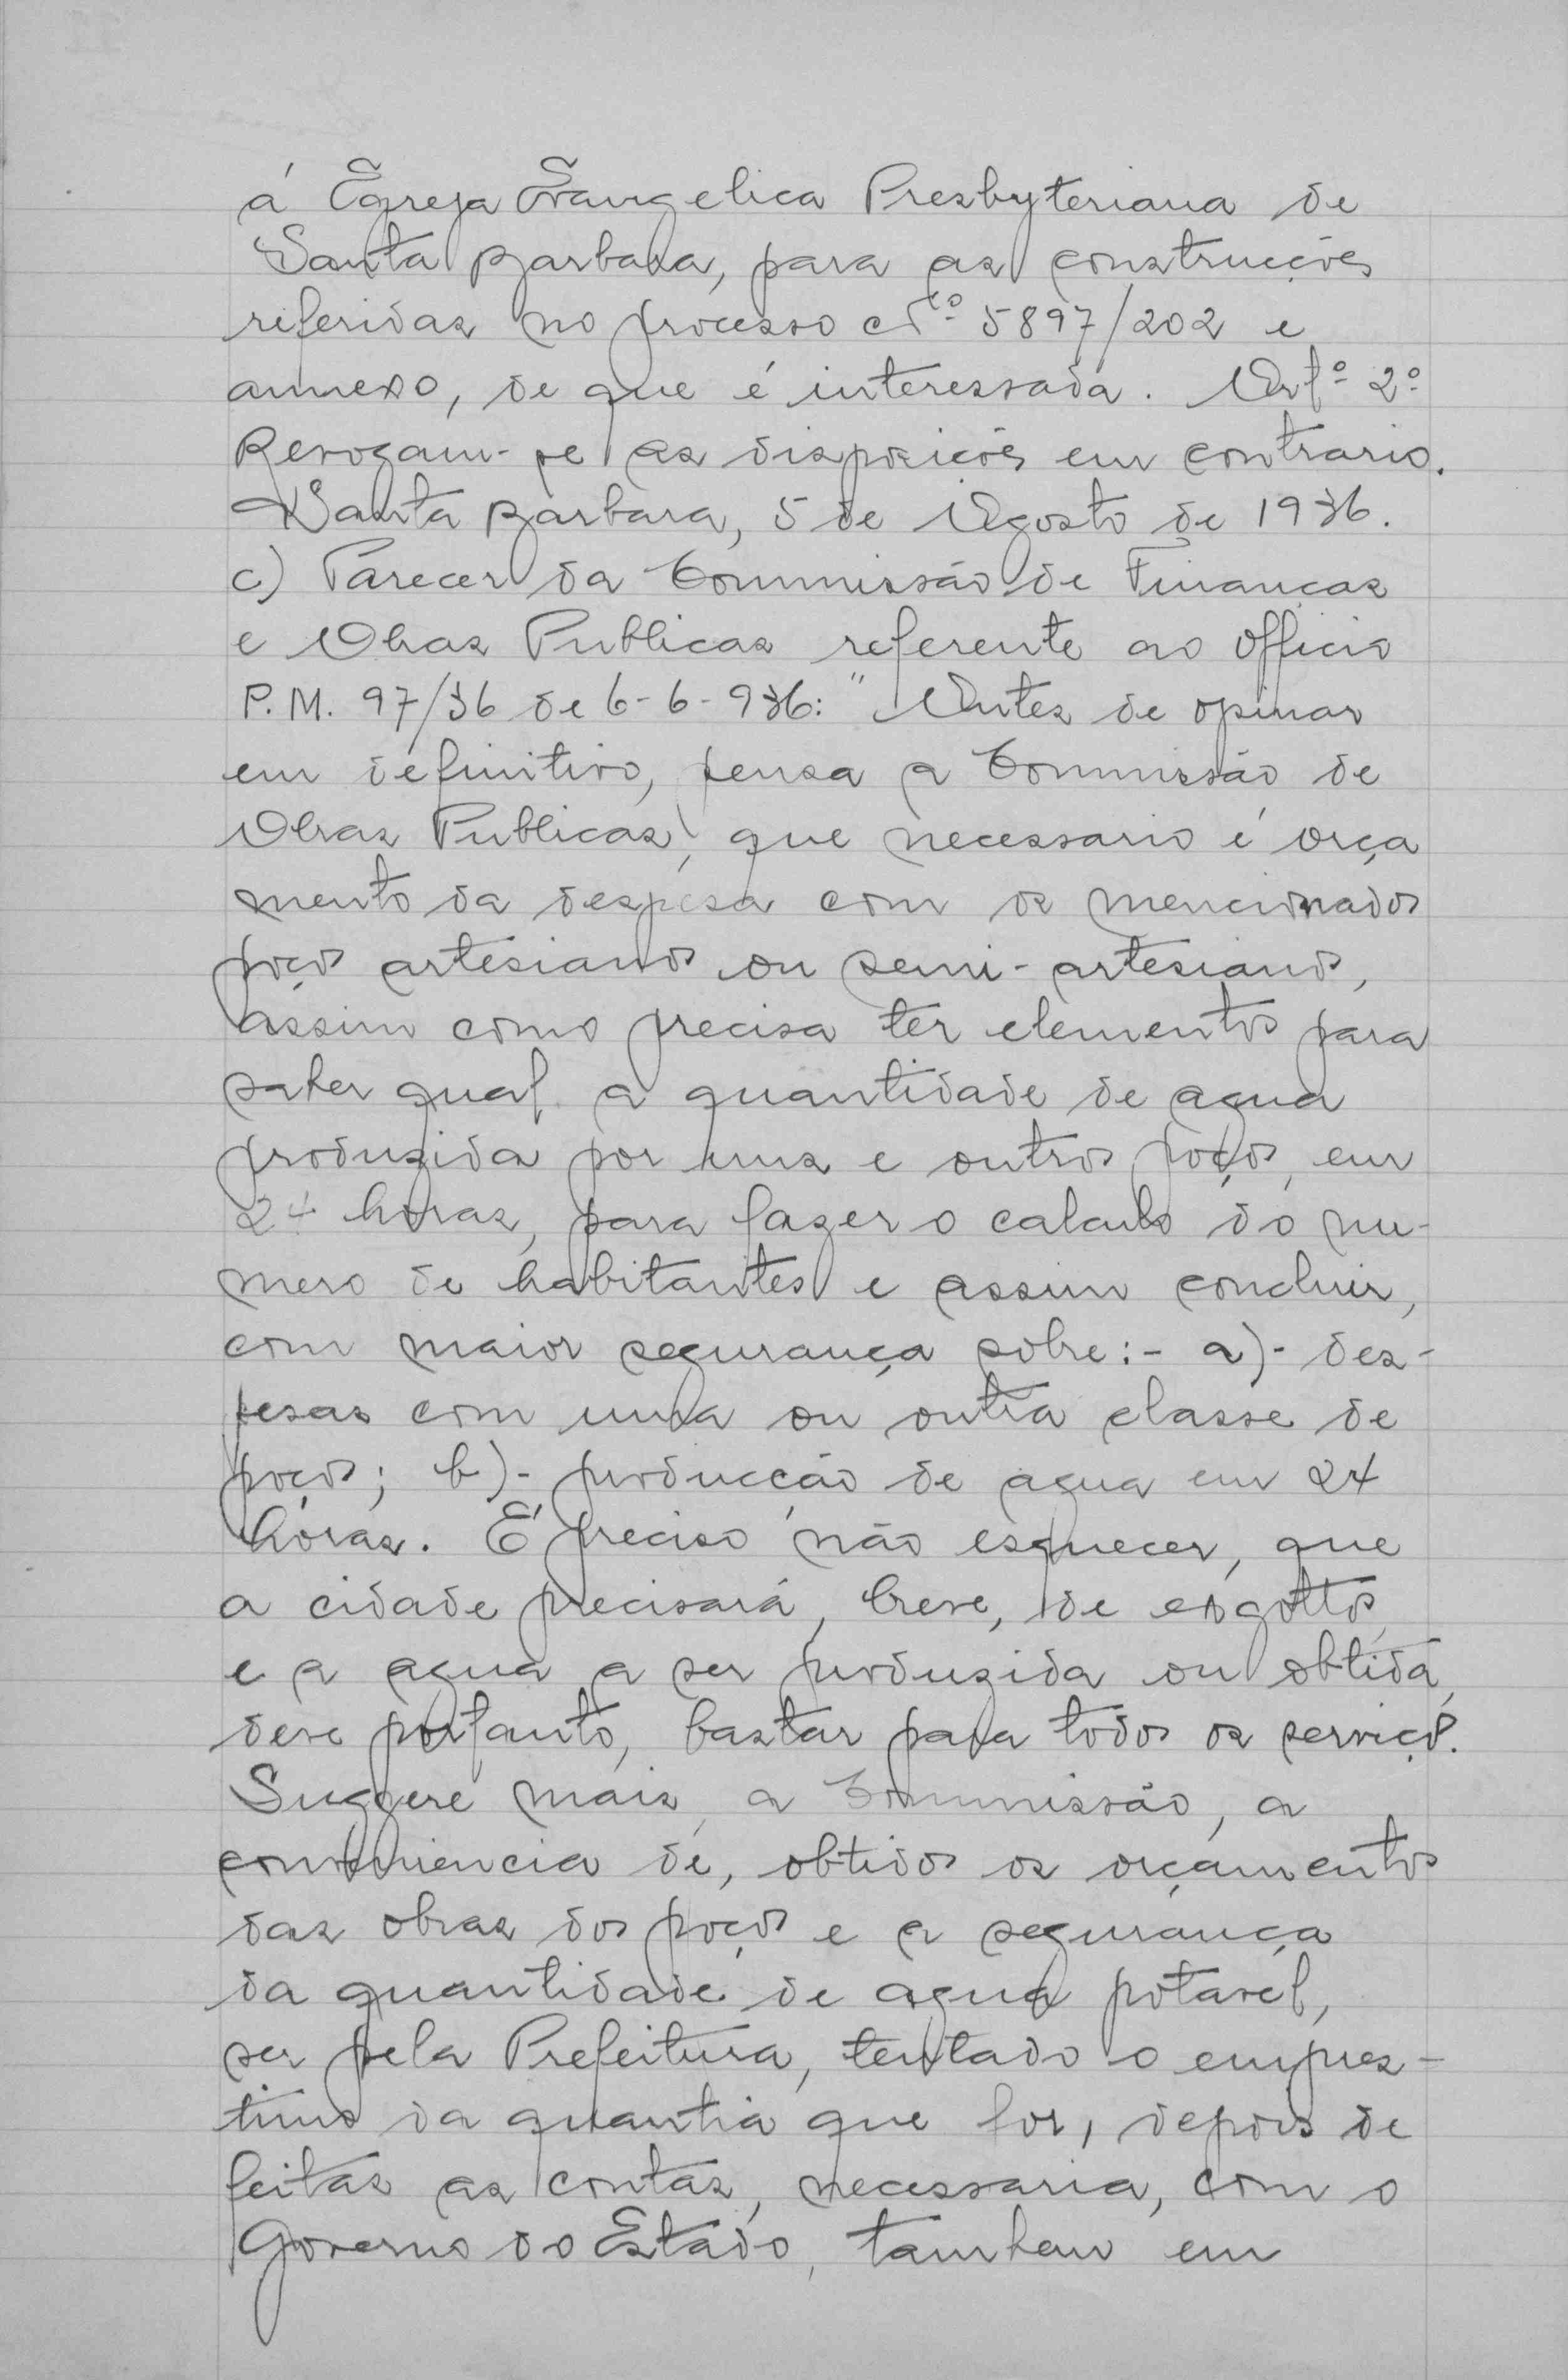 á Egreja Evangelica Presbyteriana de
Santa Barbara, para as construcções
referidas no processo Nº 5897/202 e
annexo, de que é interessada. Artº 2º
Revogam-se as disposições em contrario.
Santa Barbara, 5 de Agosto de 1936.
c) Parecer da Commissão de Finanças
e Obras Publicas referente ao officio
P.M. 97/36 de 6-6-936: "Antes de opinar
em definitivo, pensa a Commissão de
Obras Publicas, que necessario é orça
mento da despesa com os mencionados
poços artesianos ou semi-artesianos,
assim como precisa ter elementos para
saber qual a quantidade de agua
produzida por uns e outros poços, em
24 horas, para fazer o calculo do nu-
mero de habitantes e assim concluir,
com maior segurança sobre:- a)- des-
pesas com uma ou outra classe de
poços; b)- producção de agua em 24
horas. É preciso não esquecer, que
a cidade precisará, breve, de esgottos,
e a agua a ser produzida ou obtida,
deve portanto, bastar para todos os serviços.
Suggere mais, a Commissão, a
conveniencia de, obtidos os orçamentos
das obras dos poços e a segurança
da quantidade de agua potavel,
ser pela Prefeitura, tentado o empres-
timo da quantia que for, depois de
feitas as contas, necessaria, com o
Governo do Estado, tambem em